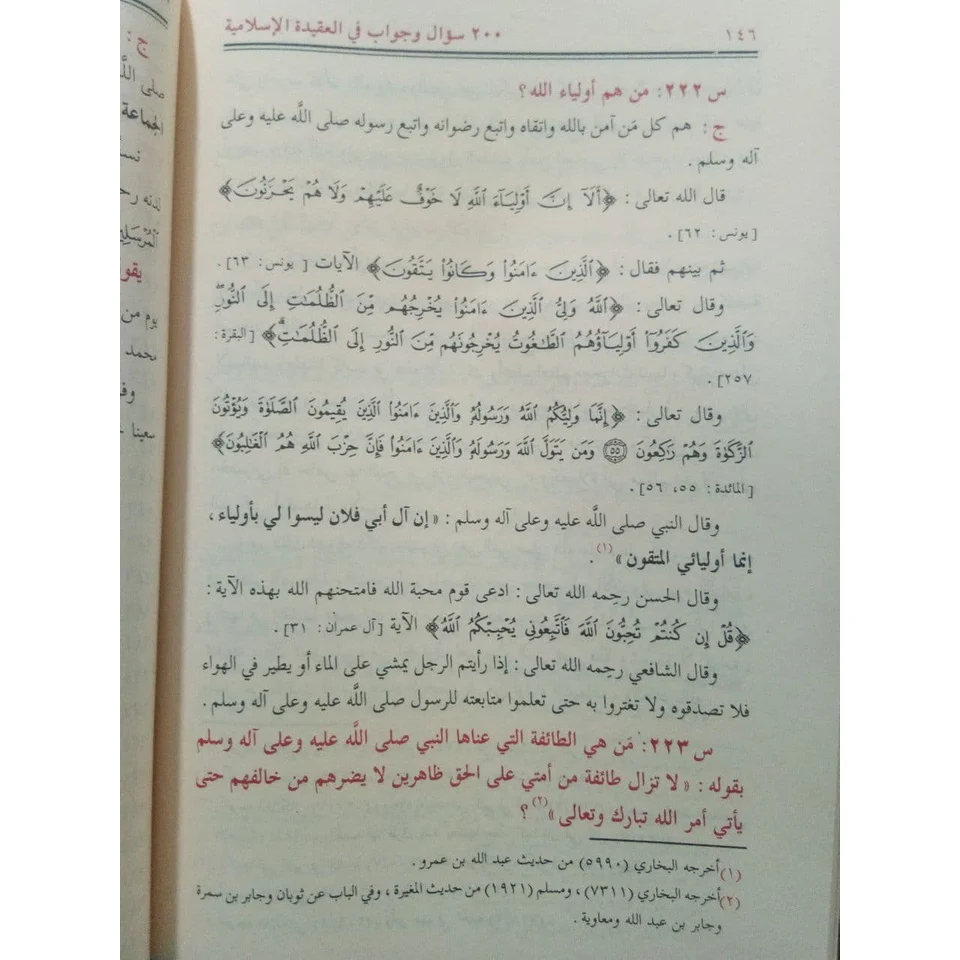 ١٤٦
٢٠٠ سؤال وجواب في العقيدة الإسلامية
س ٢٢٢: من هم أولياء الله؟
ج: هم كل مَن آمن بالله واتقاه واتبع رضوانه واتبع رسوله صلى اللَّه عليه وعلى
آله وسلم.
قال الله تعالى: ﴿أَلَآ إِنَّ أَوْلِيَآءَ ٱللَّهِ لَا خَوْفٌ عَلَيْهِمْ وَلَا هُمْ يَحْزَنُونَ﴾
[يونس: ٦٢].
ثم بينهم فقال: ﴿ٱلَّذِينَ ءَامَنُوا۟ وَكَانُوا۟ يَتَّقُونَ﴾ الآيات [يونس: ٦٣].
وقال تعالى: ﴿ٱللَّهُ وَلِىُّ ٱلَّذِينَ ءَامَنُوا۟ يُخْرِجُهُم مِّنَ ٱلظُّلُمَٰتِ إِلَى ٱلنُّورِۖ
وَٱلَّذِينَ كَفَرُوٓا۟ أَوْلِيَآؤُهُمُ ٱلطَّٰغُوتُ يُخْرِجُونَهُم مِّنَ ٱلنُّورِ إِلَى ٱلظُّلُمَٰتِۗ﴾ [البقرة:
٢٥٧].
وقال تعالى: ﴿إِنَّمَا وَلِيُّكُمُ ٱللَّهُ وَرَسُولُهُۥ وَٱلَّذِينَ ءَامَنُوا۟ ٱلَّذِينَ يُقِيمُونَ ٱلصَّلَوٰةَ وَيُؤْتُونَ
ٱلزَّكَوٰةَ وَهُمْ رَٰكِعُونَ ۝٥٥ وَمَن يَتَوَلَّ ٱللَّهَ وَرَسُولَهُۥ وَٱلَّذِينَ ءَامَنُوا۟ فَإِنَّ حِزْبَ ٱللَّهِ هُمُ ٱلْغَٰلِبُونَ﴾
[المائدة: ٥٥، ٥٦].
وقال النبي صلى اللَّه عليه وعلى آله وسلم: «إن آل أبي فلان ليسوا لي بأولياء،
إنما أوليائي المتقون»(١).
وقال الحسن رحمه الله تعالى: ادعى قوم محبة الله فامتحنهم الله بهذه الآية:
﴿قُلْ إِن كُنتُمْ تُحِبُّونَ ٱللَّهَ فَٱتَّبِعُونِى يُحْبِبْكُمُ ٱللَّهُ﴾ الآية [آل عمران: ٣١].
وقال الشافعي رحمه الله تعالى: إذا رأيتم الرجل يمشي على الماء أو يطير في الهواء
فلا تصدقوه ولا تغتروا به حتى تعلموا متابعته للرسول صلى اللَّه عليه وعلى آله وسلم.
س ٢٢٣: مَن هي الطائفة التي عناها النبي صلى اللَّه عليه وعلى آله وسلم
بقوله: «لا تزال طائفة من أمتي على الحق ظاهرين لا يضرهم من خالفهم حتى
يأتي أمر الله تبارك وتعالى»(٢)؟
(١) أخرجه البخاري (٥٩٩٠) من حديث عبد الله بن عمرو.
(٢) أخرجه البخاري (٧٣١١)، ومسلم (١٩٢١) من حديث المغيرة، وفي الباب عن ثوبان وجابر بن سمرة
وجابر بن عبد الله ومعاوية.
ج:
صلى اللَّه
الجماعة
لدنه رح
يوم من
محمد
سعينا